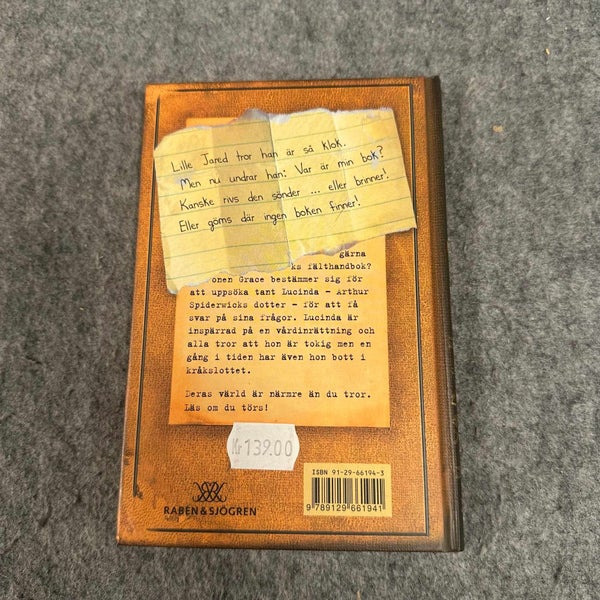 Lille Jared tror han är så klok.
Men nu undrar han: Var är min bok?
Kanske rivs den sönder ... eller brinner!
Eller göms där ingen boken finner!
gärna
ks fälthandbok?
onen Grace bestämmer sig för
att uppsöka tant Lucinda - Arthur
Spiderwicks dotter - för att få
svar på sina frågor. Lucinda är
inspärrad på en vårdinrättning och
alla tror att hon är tokig men en
gång i tiden har även hon bott i
kråkslottet.
Deras värld är närmre än du tror.
Läs om du törs!
Kr 139.00
ISBN 91-29-66194-3
9 789129 661941
RABÉN & SJÖGREN